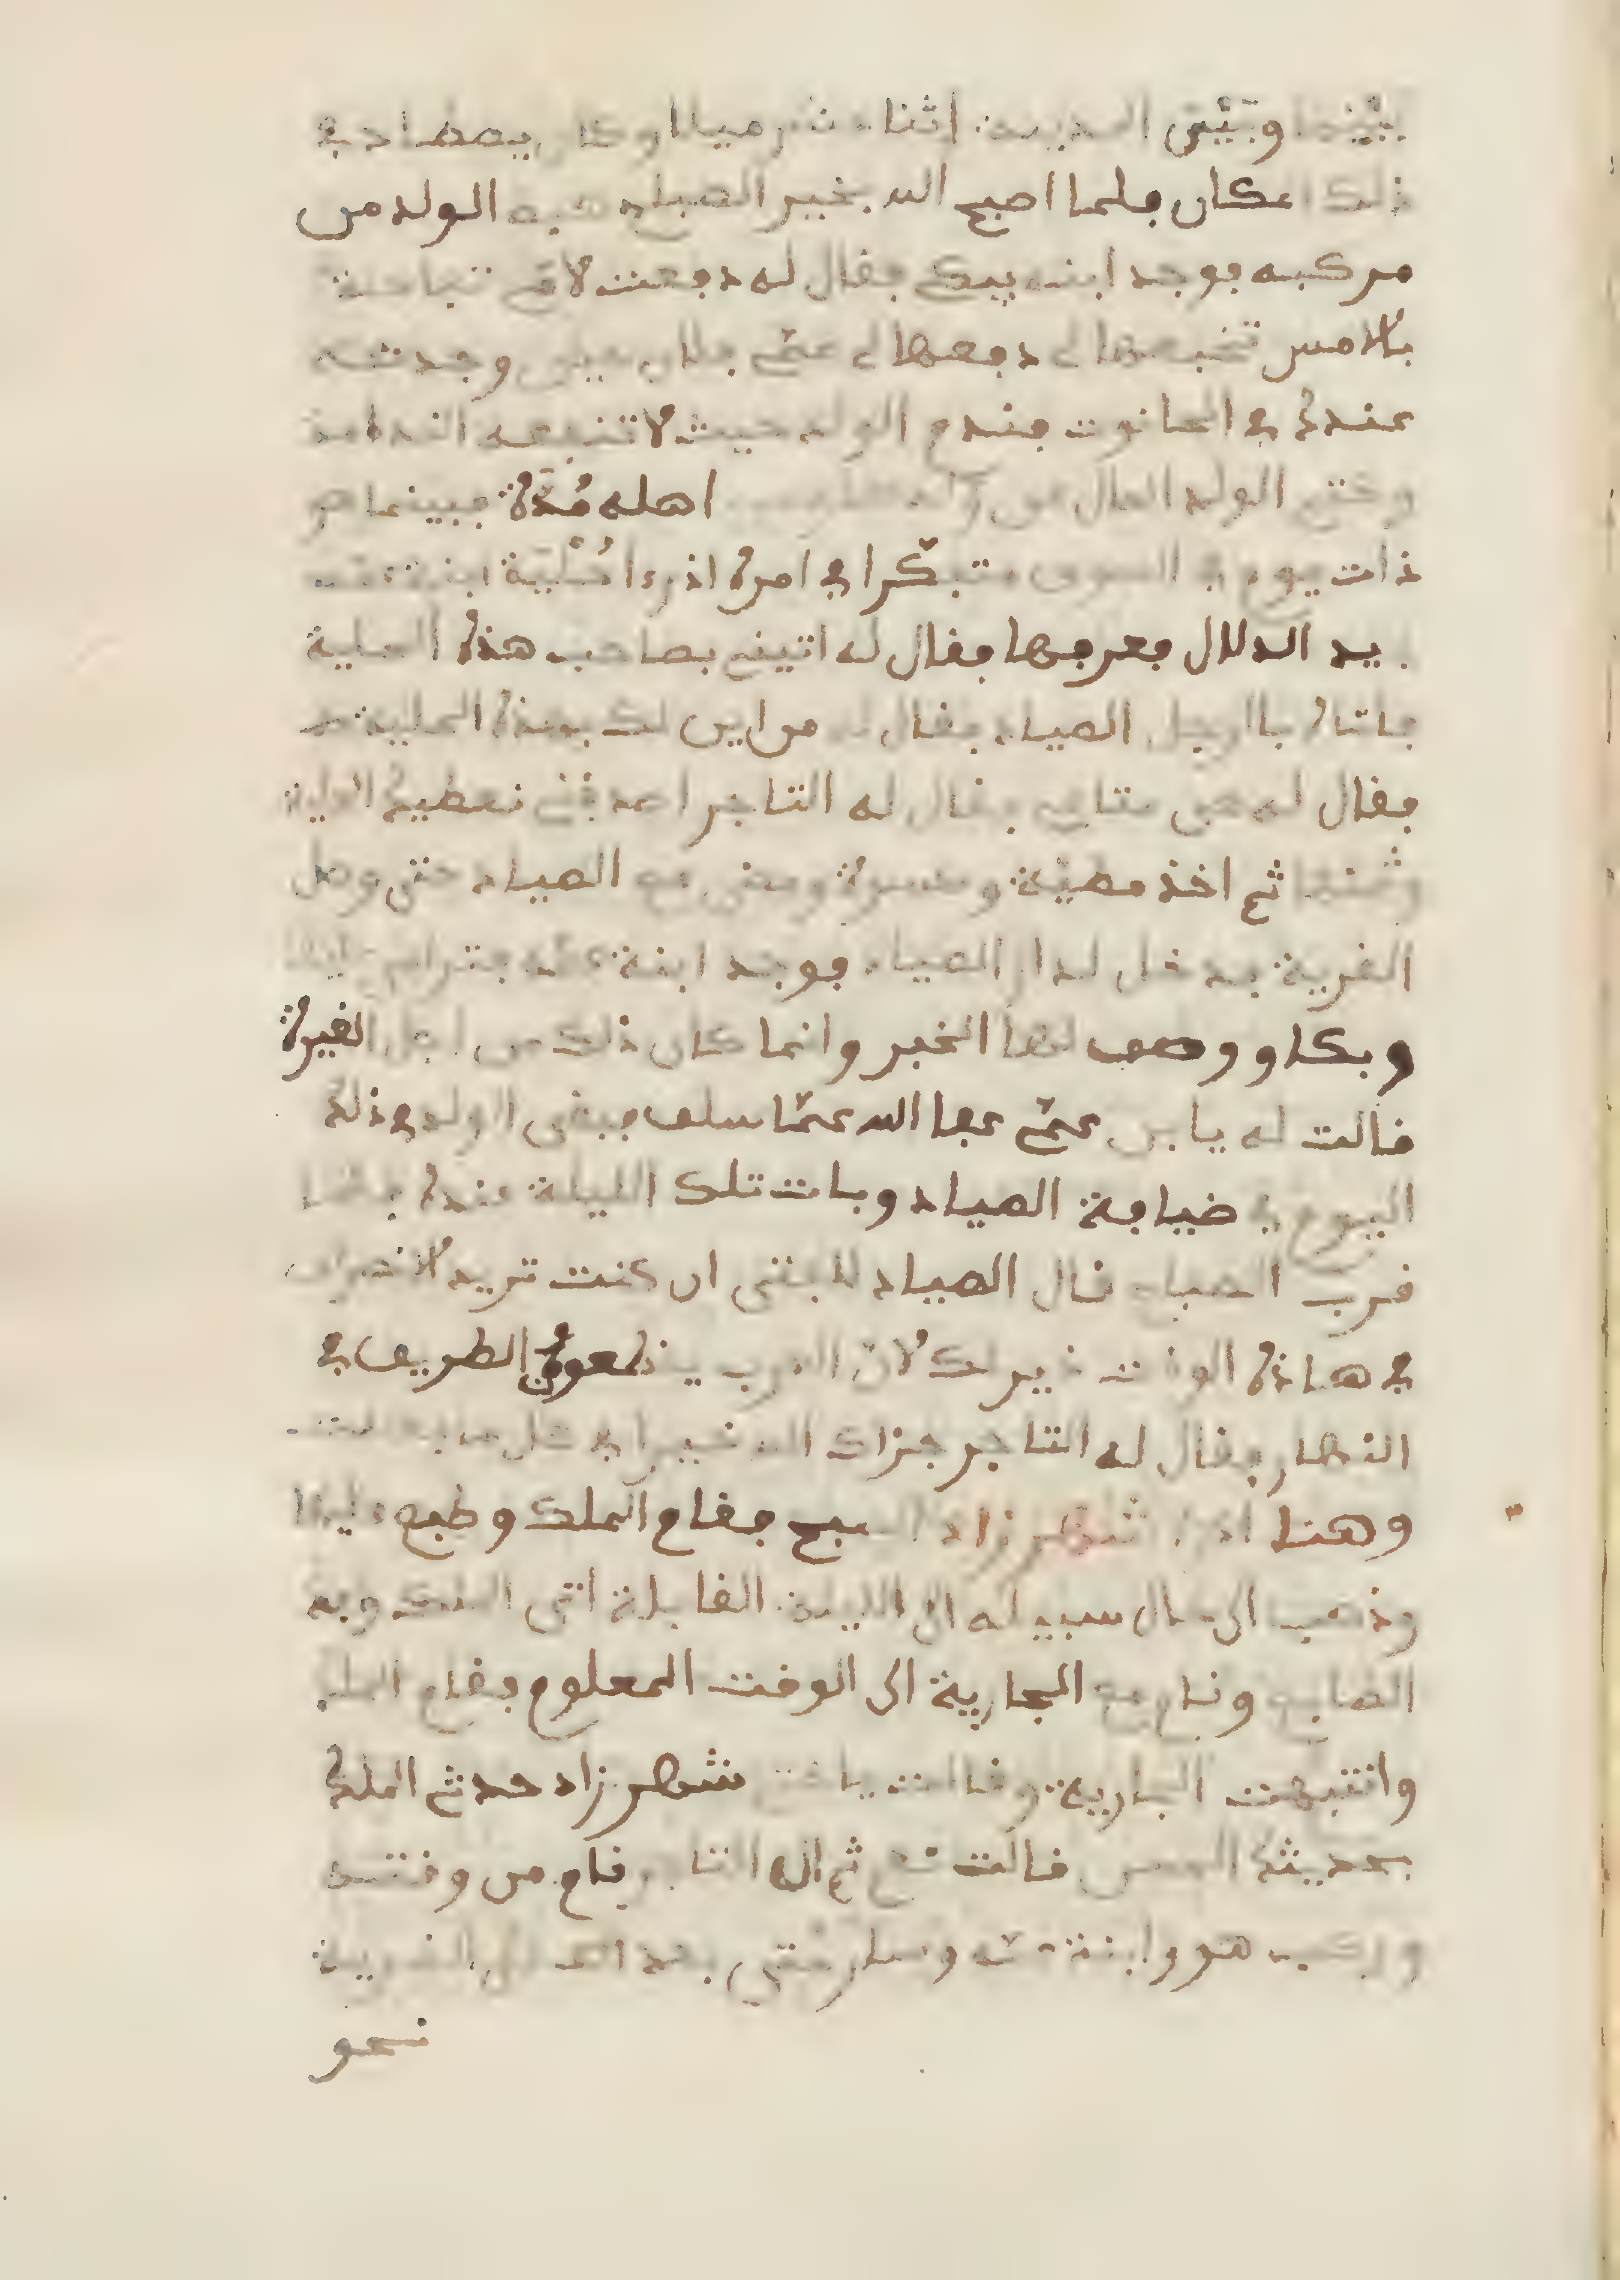 بينها وبين المدينة اثنا عشر ميلا وكان يصطاد في
ذلك المكان فلما اصبح الله بخير الصباح هبط الولد من
مركبه فوجد ابنه يبكي فقال له دفعت لامّي تفاحة
بالامس تخبيها لي دفعها لي عمّي فلان حين وجدته
عندك في الحانوت فندم الولد حيث لا تنفعه الندامة
وخفى الولد الحال عن اهله مُدّة فبينما هو
ذات يوم في السوق متفكّرا في امره اذ رءا حُلْيَة ابنة عمه
بيد الدلال فعرفها فقال له اتيني بصاحب هذه الحلية
فاتاه بالرجل الصياد فقال له من اين لك بهذه الحلية
فقال له هي متاعي فقال له التاجر نعطيك الحلية
وثمنها ثم اخذ مطيّة وكسوة ومضى مع الصياد حتى وصل
القرية فدخل لدار الصياد فوجد ابنة عمّه فترامى عليها
وبكا ووصف لها الخبر وانما كان ذلك من اجل الغيرة
فالت له يا بن عمّي عفا الله عمّا سلف فبقى الولد في ذلك
اليوم في ضيافة الصياد وبات تلك الليلة عنده فلما
قرب الصباح قال الصياد للفتى ان كنت تريد الانصراف
في هاذه الوقت خير لك لان العرب يقطعون الطريق في
النهار فقال له التاجر جزاك الله خيرا في كل ما فعلت
وهنا ادرك شهرزاد الصبح فقام الملك وطبع عليها
وذهب الى حال سبيله الى الليلة القابلة اتى الملك وفك
الطابع ونام مع الجارية الى الوقت المعلوم فقام الملك
وانتبهت الجارية وقالت يا اختي شهرزاد حدثي الملك
بحديثك الحسن قالت نعم ثم ان التاجر قام من وقته
وركب هو وابنة عمه وسار حتى بعد القرية
نحو